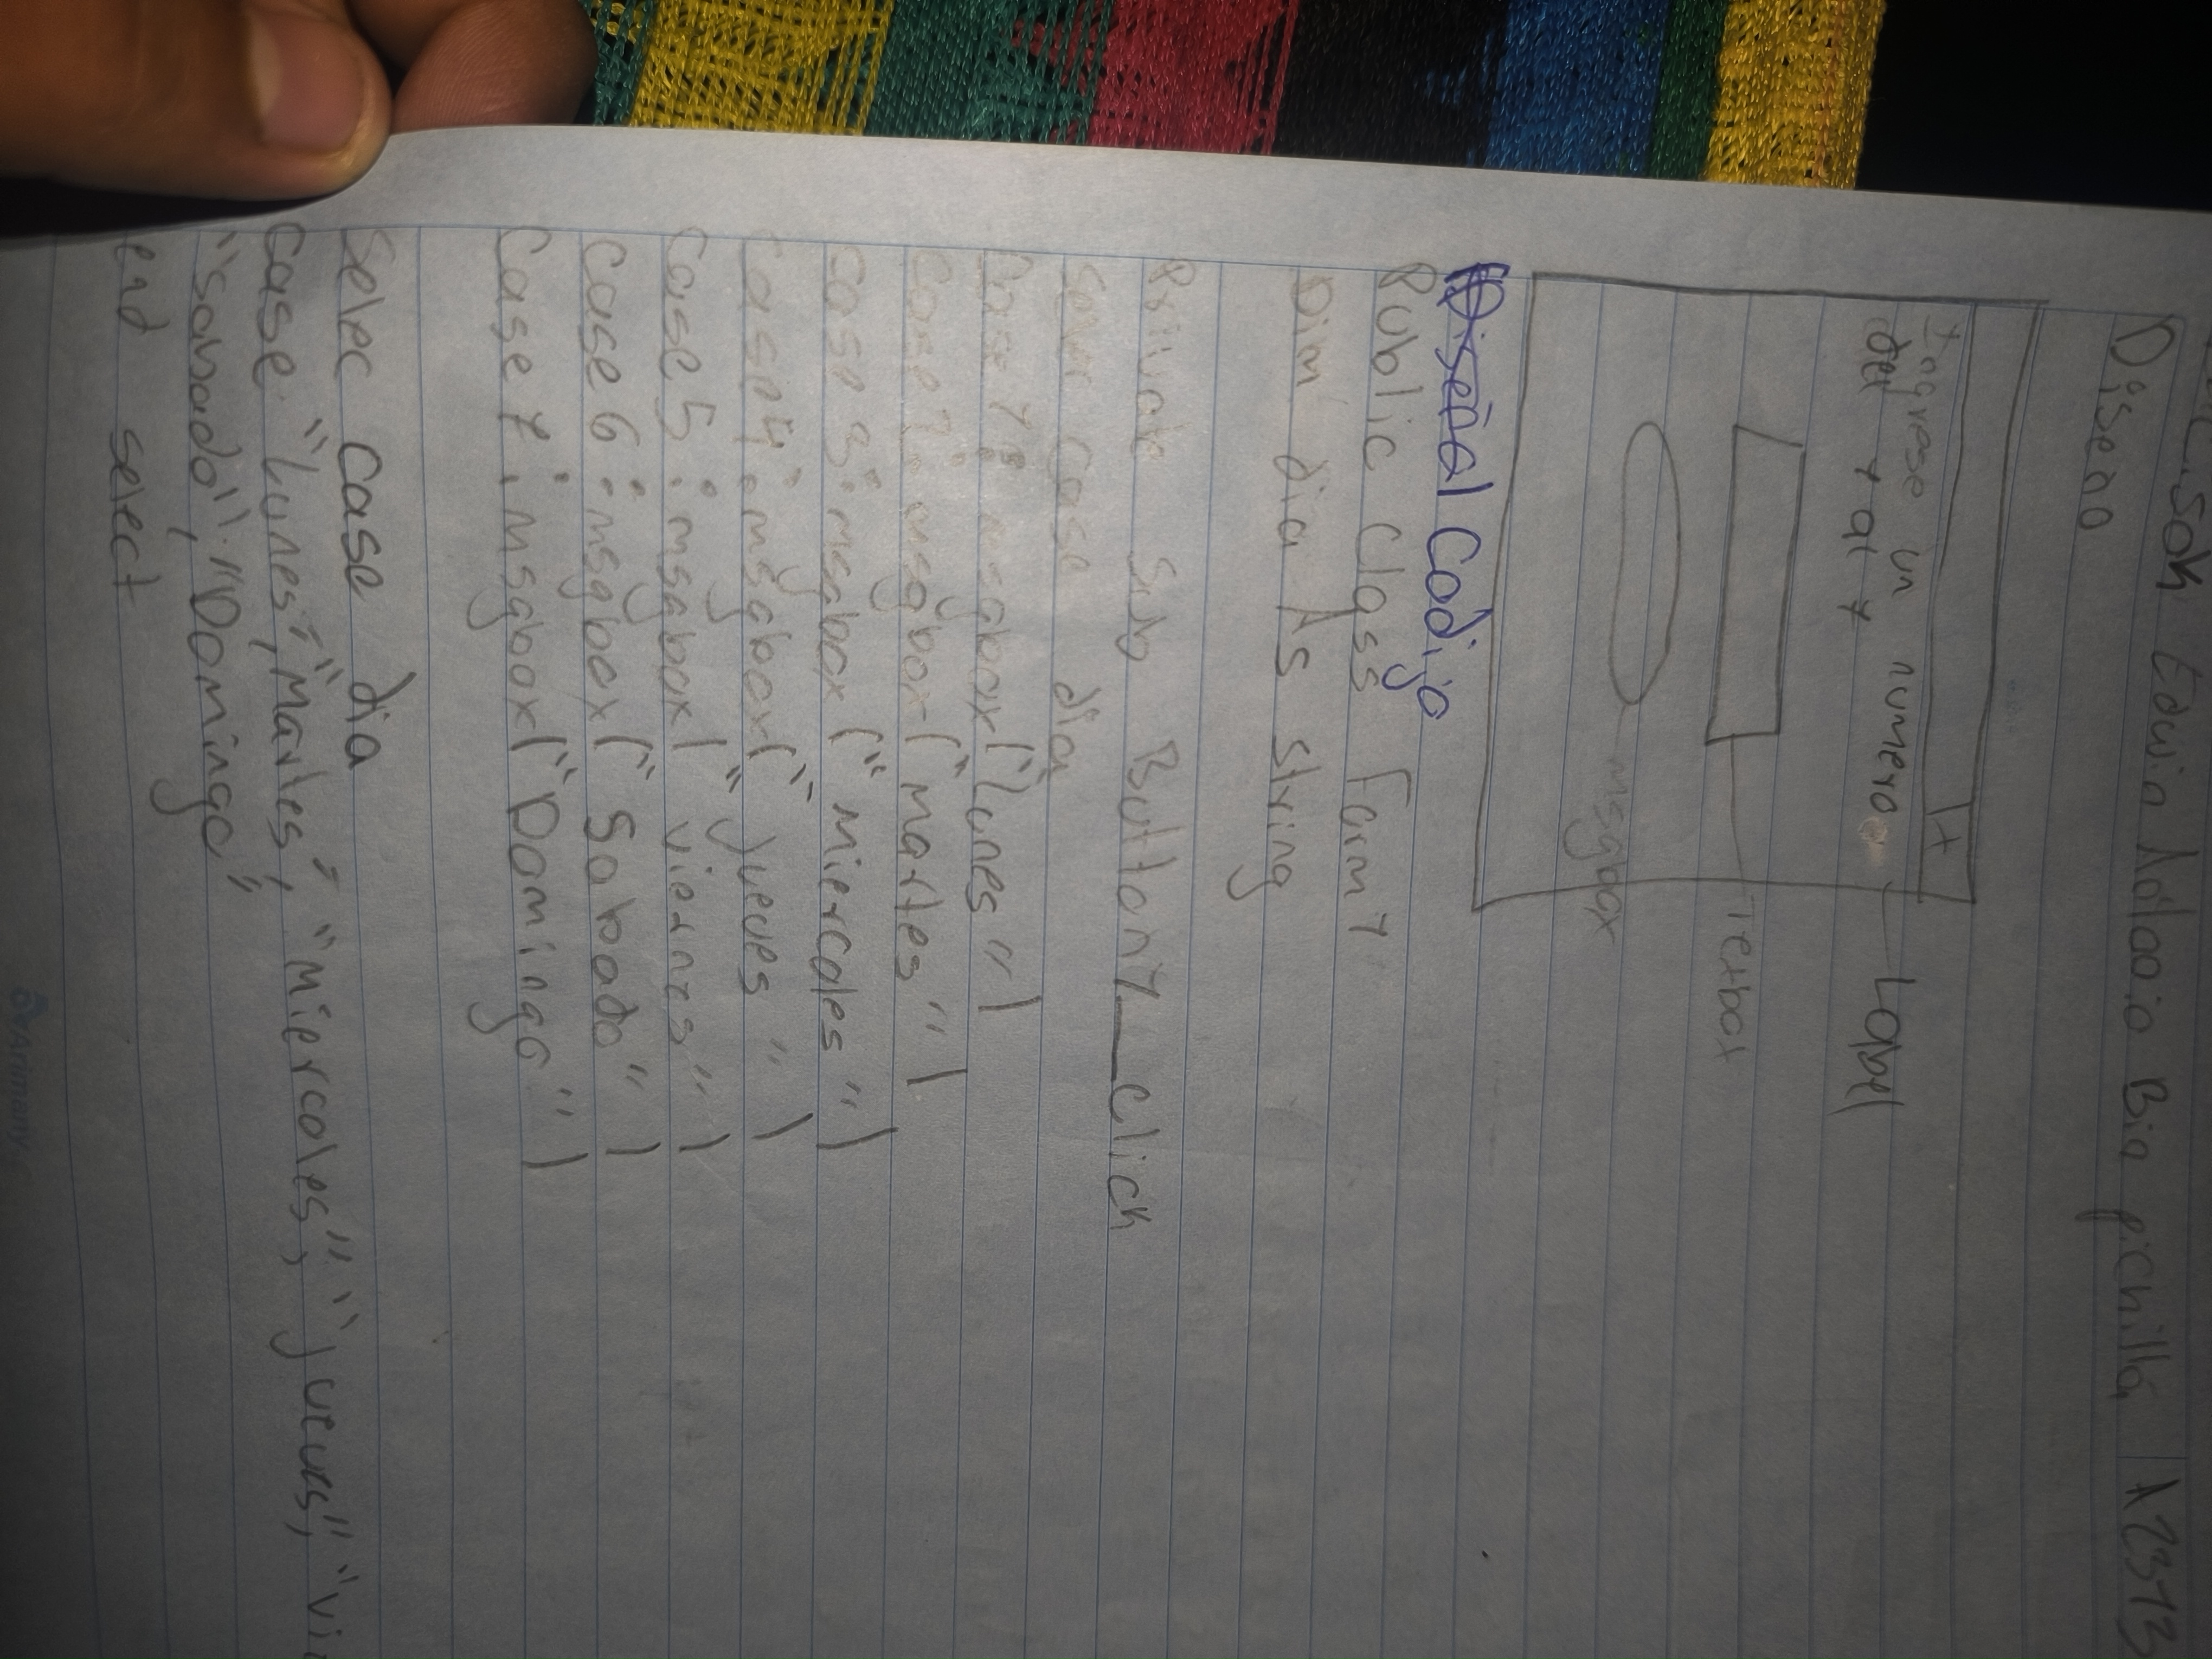 Edwin Adlaaio Bia pichilla
Diseño
Ingrese un numero
del 1 al 7
Label
Textbox
msgbox
Diseñal Codijo
Public Class Form1
Dim dia As string
Private Sub Button1_Click
Selec Case dia
Case 1: msgbox("lunes")
Case 2: msgbox("martes")
Case 3: msgbox("Miercoles")
Case 4: msgbox("jueves")
Case 5: msgbox("viernes")
Case 6: msgbox("Sabado")
Case 7: msgbox("Domingo")
Selec case dia
Case "Lunes", "Martes", "miercoles", "jueves", "vie
"sabado", "Domingo"
end select